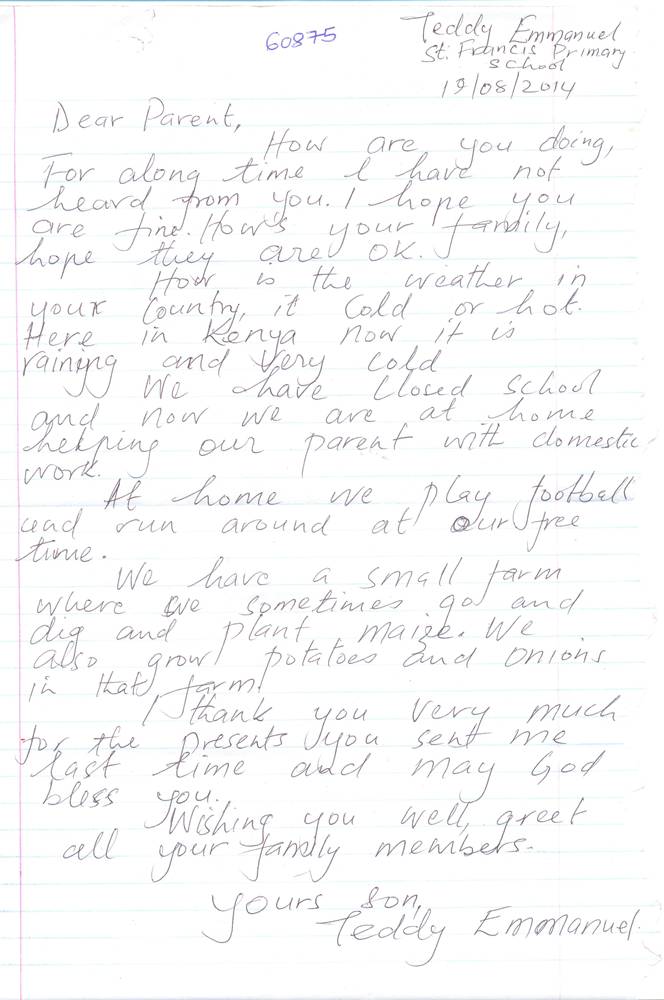 60875
Teddy Emmanuel
St. Francis Primary
school
19/08/2014
Dear Parent,
How are you doing,
For along time I have not
heard from you. I hope you
are fine. How's your family,
hope they are OK.
How is the weather in
your Country, it Cold or hot.
Here in Kenya now it is
raining and very cold
We have closed school
and now we are at home
helping our parent with domestic
work.
At home we play football
and run around at our free
time.
We have a small farm
where we sometimes go and
dig and plant maize. We
also grow potatoes and onions
in that farm.
I thank you very much
for the presents you sent me
last time and may God
bless you.
Wishing you well, greet
all your family members.
Yours son,
Teddy Emmanuel.